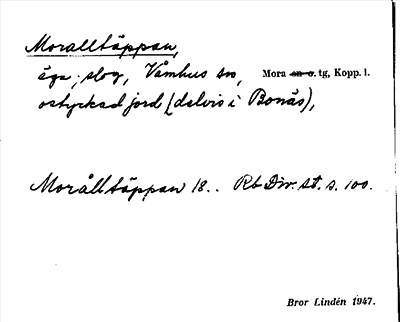 Moralltäppan,
äga, slog, Våmhus sn, Mora sn o. tg, Kopp. l.
ostyckad jord (delvis i Bonäs),
Morålltäppan 18.. Rb Div. st. s. 100.
Bror Lindén 1947.